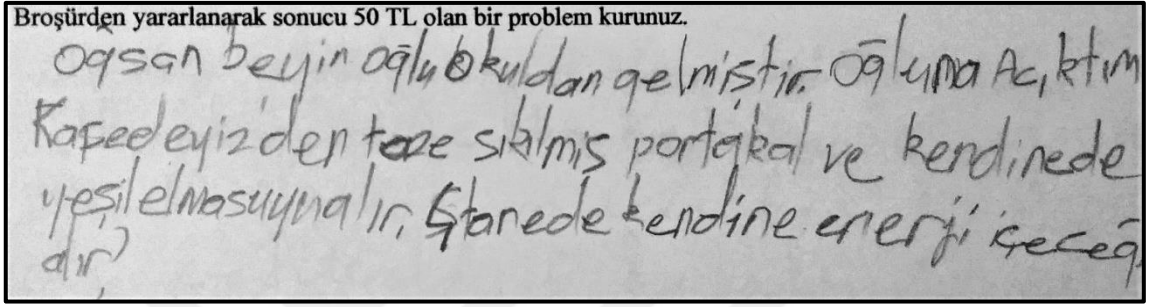 Broşürden yararlanarak sonucu 50 TL olan bir problem kurunuz.
Oğsan beyin oğlu okuldan gelmiştir. Oğluna Acıktım
Kafedeyiz'den taze sıkılmış portakal ve kendinede
yeşil elma suyu alır. tanede kendine enerji içeceğ
alır?